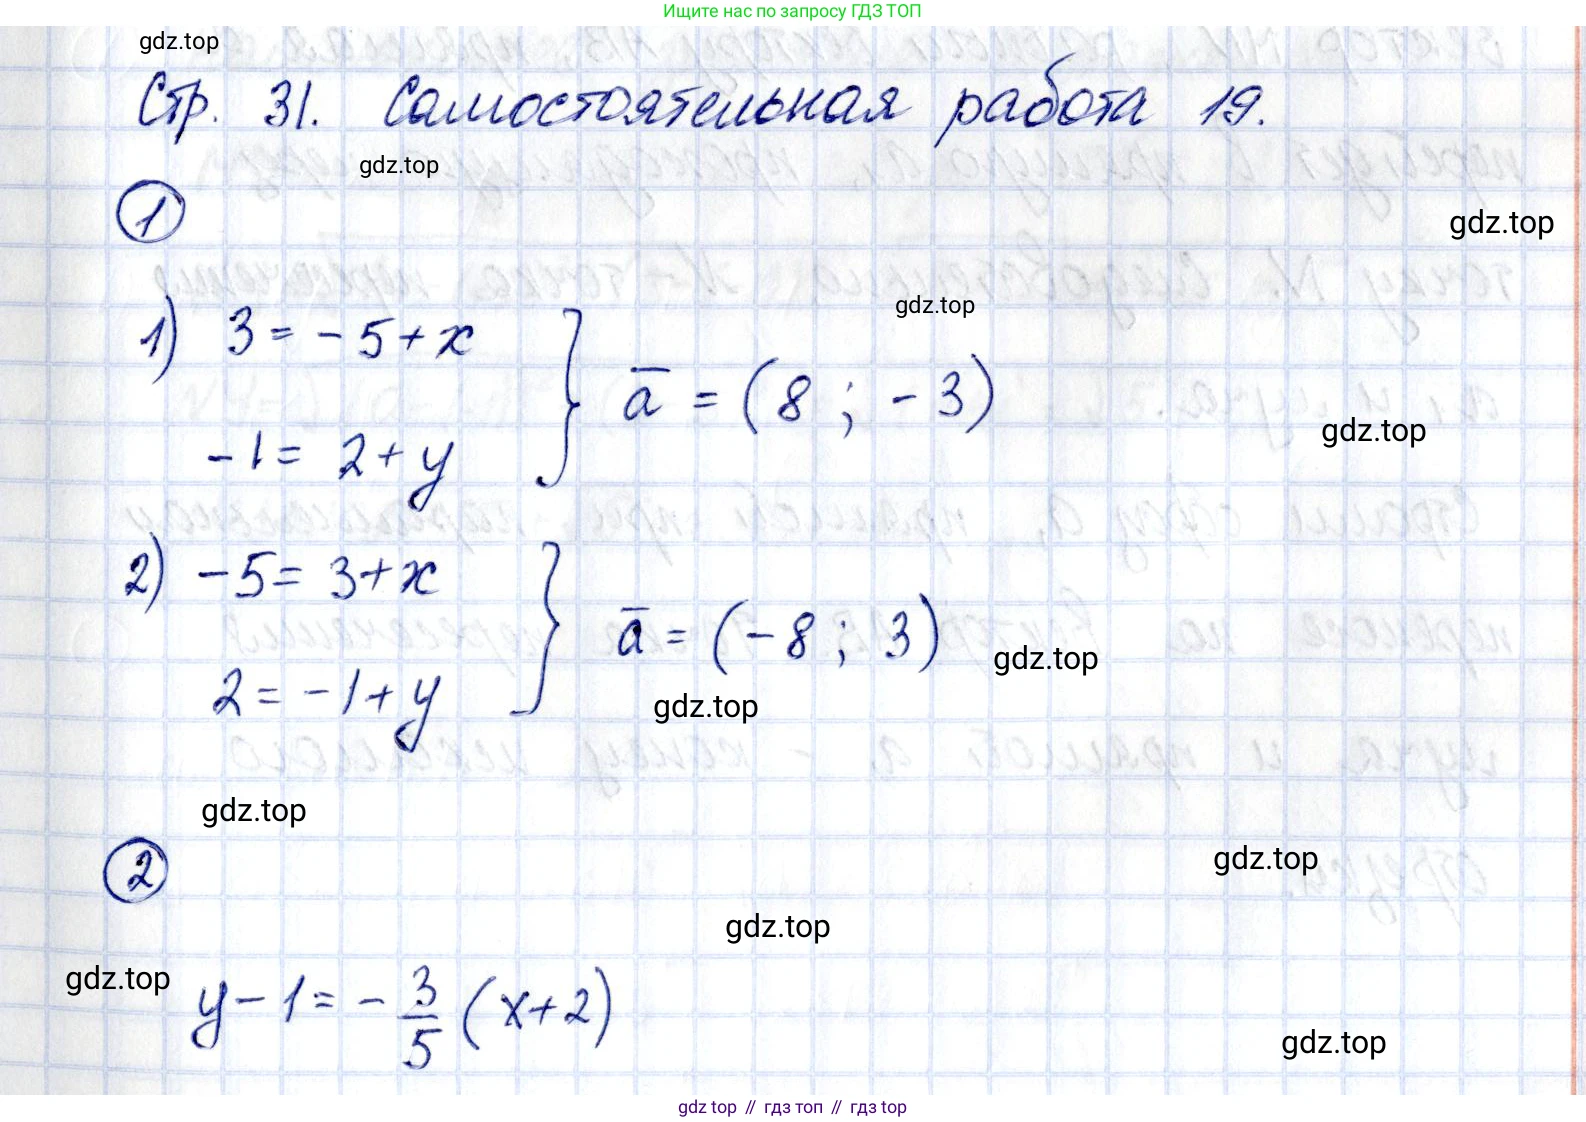 Ищите нас по запросу ГДЗ ТОП
gdz.top
Стр. 31. Самостоятельная работа 19.
gdz.top
1
gdz.top
1) 3 = - 5 + x
gdz.top
a̅ = (8 ; - 3)
-1 = 2 + y
gdz.top
2) - 5 = 3 + x
a̅ = (-8 ; 3)
gdz.top
2 = -1 + y
gdz.top
gdz.top
2
gdz.top
gdz.top
gdz.top
y - 1 = - 3/5 (x + 2)
gdz.top
gdz top // гдз топ // гдз top